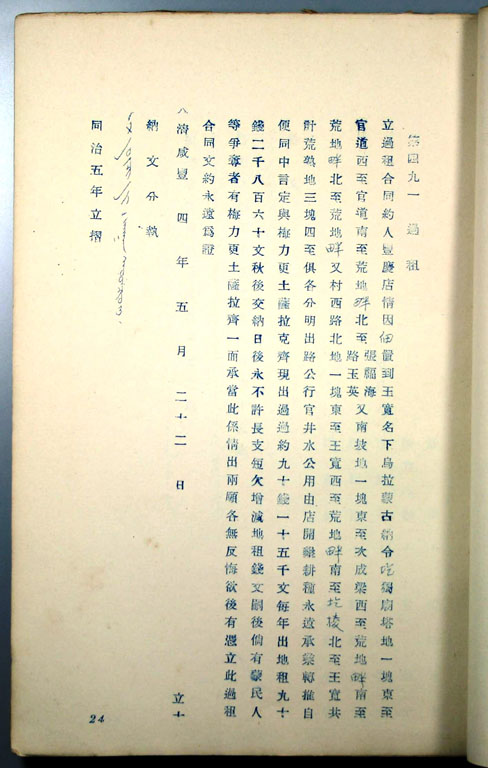 第四九一 過租
立過租合同約人豐慶店情因佃置到王寬名下烏拉蒙古納令圪獨廟塔地一塊東至
官道西至官道南至荒地畔北至張福海路玉英又南坡地一塊東至次成梁西至荒地畔南至
荒地畔北至荒地畔又村西路北地一塊東至王寬西至荒地畔南至圪棱北至王寬共
計荒熟地三塊四至俱各分明出路公行官井水公用由店開墾耕種永遠承業轉推自
便同中言定與梅力更土薩拉克齊現出過過約九十錢一十五千文每年出地租九十
錢二千八百六十文秋後交納日後永不許長支短欠增減地租錢文嗣後倘有蒙民人
等爭奪者有梅力更土薩拉齊一面承當此係情出兩願各無反悔欲後有憑立此過租
合同文約永遠爲證
大清咸豐四年五月二十二日 立十
納文分執
同治五年立摺
24